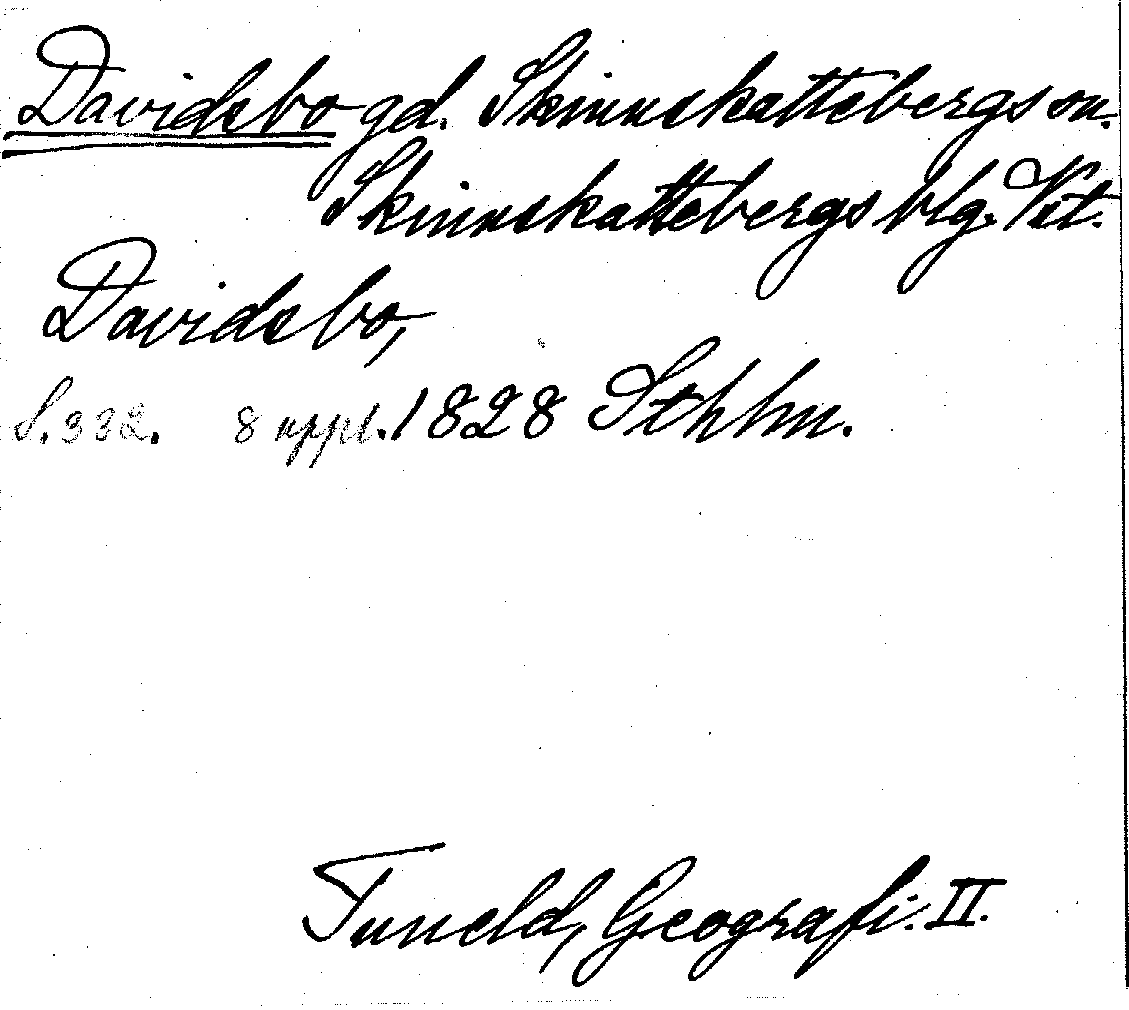 Davidsbo gd. Skinnskattebergs sn.
Skinnskattebergs blg. Vst.
Davidsbo,
S. 332. 8 uppl. 1828 Sthlm.
Tuneld, Geografi. II.